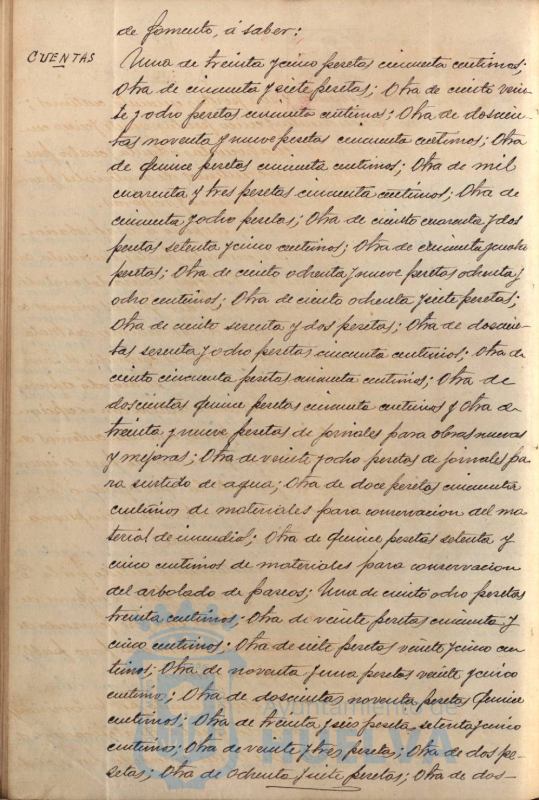 de fomento, á saber:
CUENTAS
Una de treinta y cinco pesetas cincuenta centimos;
Otra de cincuenta y siete pesetas; Otra de ciento vein-
te y ocho pesetas cincuenta centimos; Otra de doscien-
tas noventa y nueve pesetas cincuenta centimos; Otra
de quince pesetas cincuenta centimos; Otra de mil
cuarenta y tres pesetas cincuenta centimos; Otra de
cincuenta y ocho pesetas; Otra de ciento cuarenta y dos
pesetas setenta y cinco centimos; Otra de cincuenta y cuatro
pesetas; Otra de ciento ochenta y nueve pesetas ochenta y
ocho centimos; Otra de ciento ochenta y siete pesetas;
Otra de ciento sesenta y dos pesetas; Otra de doscien-
tas sesenta y ocho pesetas cincuenta centimos; Otra de
ciento cincuenta pesetas cincuenta centimos; Otra de
doscientas quince pesetas cincuenta centimos y Otra de
treinta y nueve pesetas de jornales para obras nuevas
y mejoras; Otra de veinte y ocho pesetas de jornales pa
ra surtido de agua; Otra de doce pesetas cincuenta
centimos de materiales para conservacion del ma
terial de incendios; Otra de quince pesetas setenta y
cinco centimos de materiales para conservacion
del arbolado de paseos; Una de ciento ocho pesetas
treinta centimos; Otra de veinte pesetas cincuenta y
cinco centimos; Otra de siete pesetas veinte y cinco cen
timos; Otra de noventa y una pesetas veinte y cinco
centimos; Otra de doscientas noventa pesetas quince
centimos; Otra de treinta y seis pesetas setenta y cinco
centimos; Otra de veinte y tres pesetas; Otra de dos pe-
setas; Otra de ochenta y siete pesetas; Otra de dos-
Ayuntamiento de
HUELVA